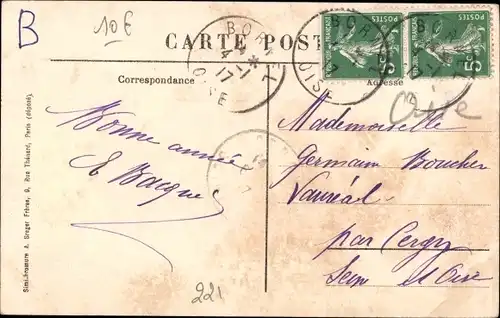 B
10€
CARTE POSTALE
Correspondance
Adresse
BOR
4-1
17
OISE
Oise
Bonne année
E Bacque
Mademoiselle
Germain Boucher
Vauréal
par Cergy
Seine et Oise
221
Simili-bromure A. Breger Frères, 9, Rue Thénard, Paris (déposé).